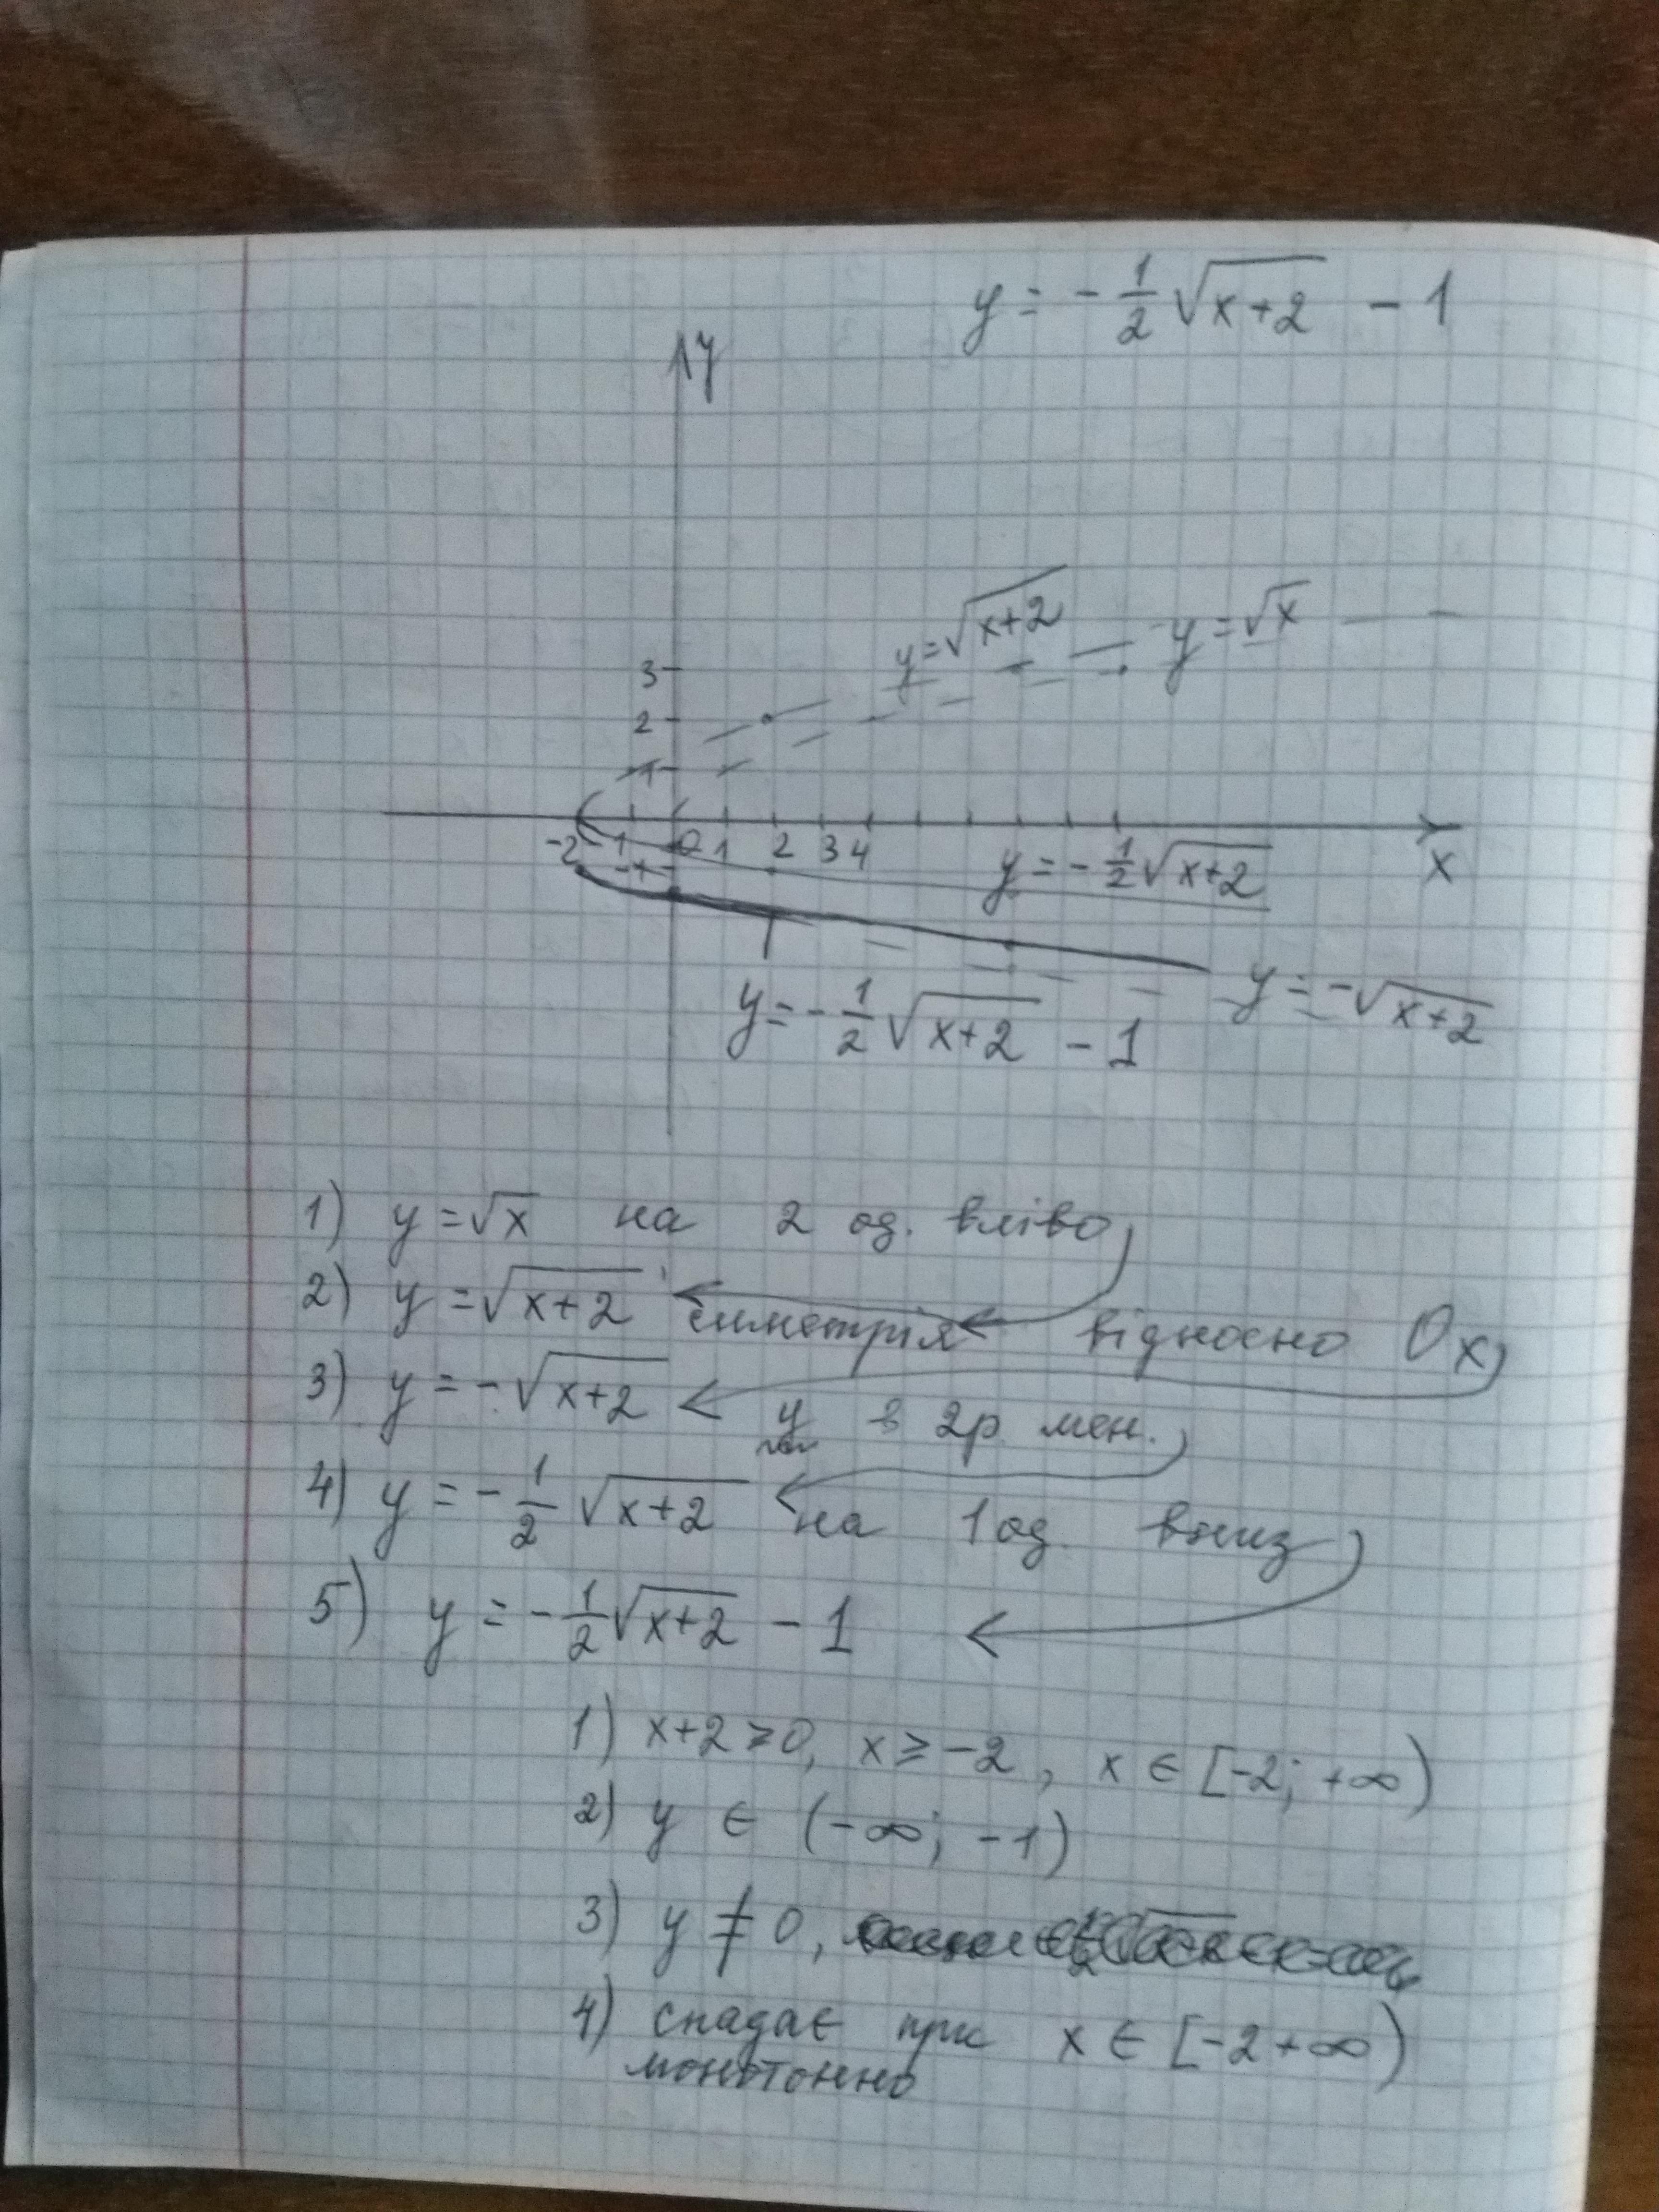 y = -1/2 √(x+2) - 1
y
y = √(x+2)
y = √x
3
2
1
-2 -1 0 1 2 3 4
x
-1
y = -1/2 √(x+2)
y = -√(x+2)
y = -1/2 √(x+2) - 1
1) y = √x на 2 од. вліво
2) y = √(x+2) симетрія відносно Ox
3) y = -√(x+2) y в 2р. мен.
4) y = -1/2 √(x+2) на 1 од. вниз
5) y = -1/2 √(x+2) - 1
1) x+2 ≥ 0, x ≥ -2, x ∈ [-2; +∞)
2) y ∈ (-∞; -1)
3) y ≠ 0,
4) спадає при x ∈ [-2 +∞)
монотонно